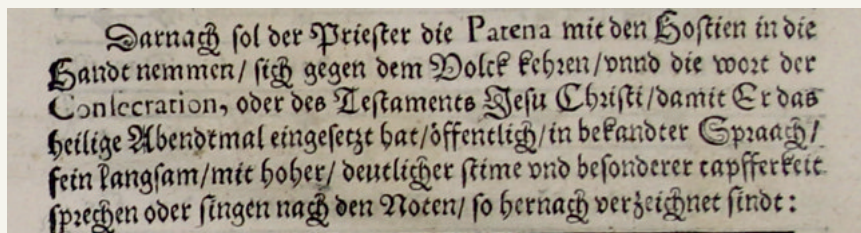 Darnach sol der Priester die Patena mit den Hostien in die
Handt nemmen/ sich gegen dem Volck kehren/vnnd die wort der
Consecration, oder des Testaments Jesu Christi/damit Er das
heilige Abendtmal eingesetzt hat/öffentlich/in bekandter Spraach/
fein langsam/mit hoher/ deutlicher stime vnd besonderer tapfferkeit
sprechen oder singen nach den Noten/ so hernach verzeichnet sindt: